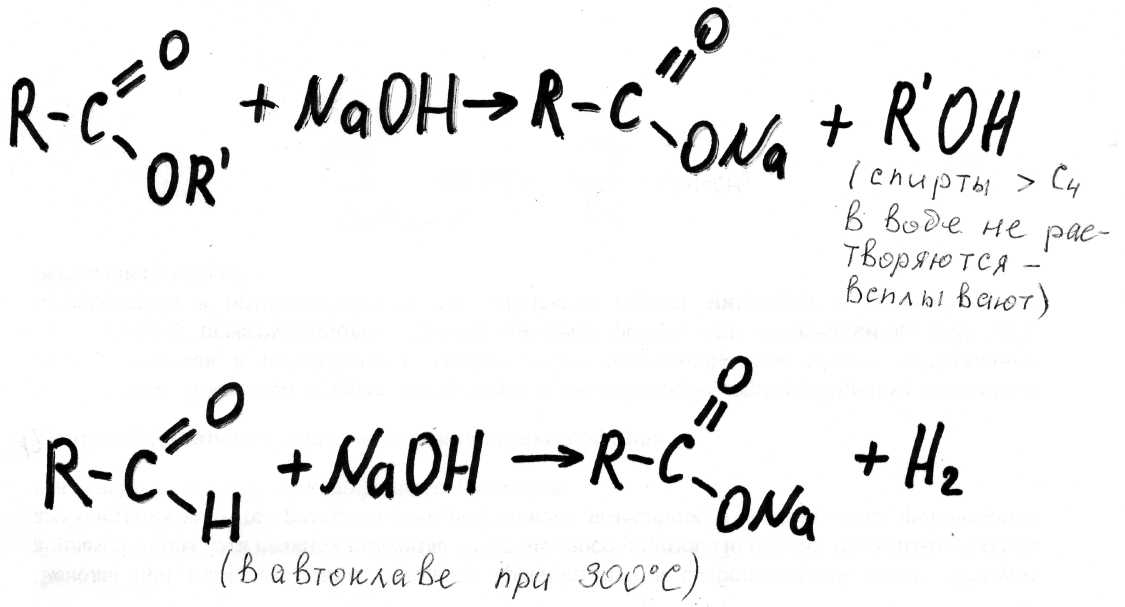 R-C(=O)OR' + NaOH → R-C(=O)ONa + R'OH
(спирты > C₄
в воде не рас-
творяются -
всплывают)
R-C(=O)H + NaOH → R-C(=O)ONa + H₂
(в автоклаве при 300°C)